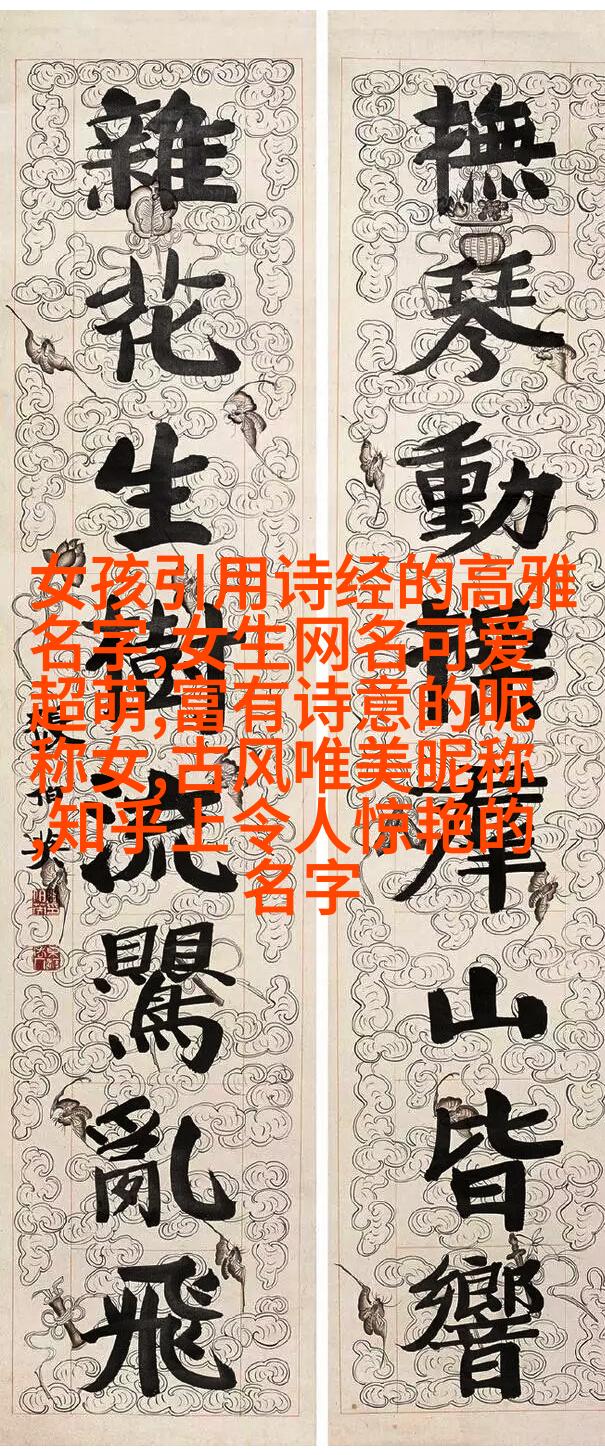 撫琴動操羣山皆響
雜花生樹流鸎亂飛
女孩引用诗经的高雅
名字,女生网名可爱
超萌,富有诗意的昵
称女,古风唯美昵称
,知乎上令人惊艳的
名字